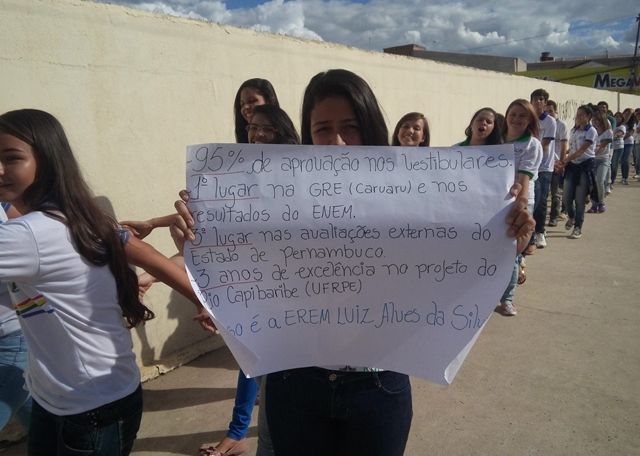 -95% de aprovação nos Vestibulares.
-1º lugar na GRE (Caruaru) e nos
resultados do ENEM.
3º lugar nas avaltações externas do
Estado de Pernambuco.
3 anos de excelência no projeto do
Rio Capibaribe (UFRPE)
so é a EREM LUIZ Alves da Silv
MEGA